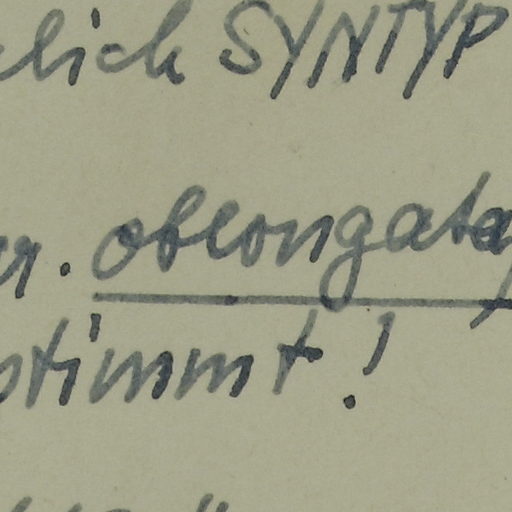 lich SYNTYP
r. oblongata,
stimmt!